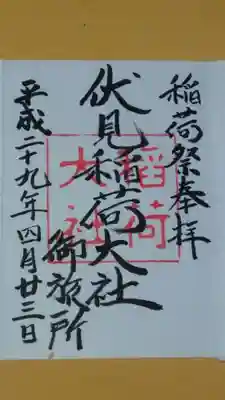 稲荷祭奉拝
伏見稲荷大社
御旅所
平成二十九年四月廿三日
稲荷
大社